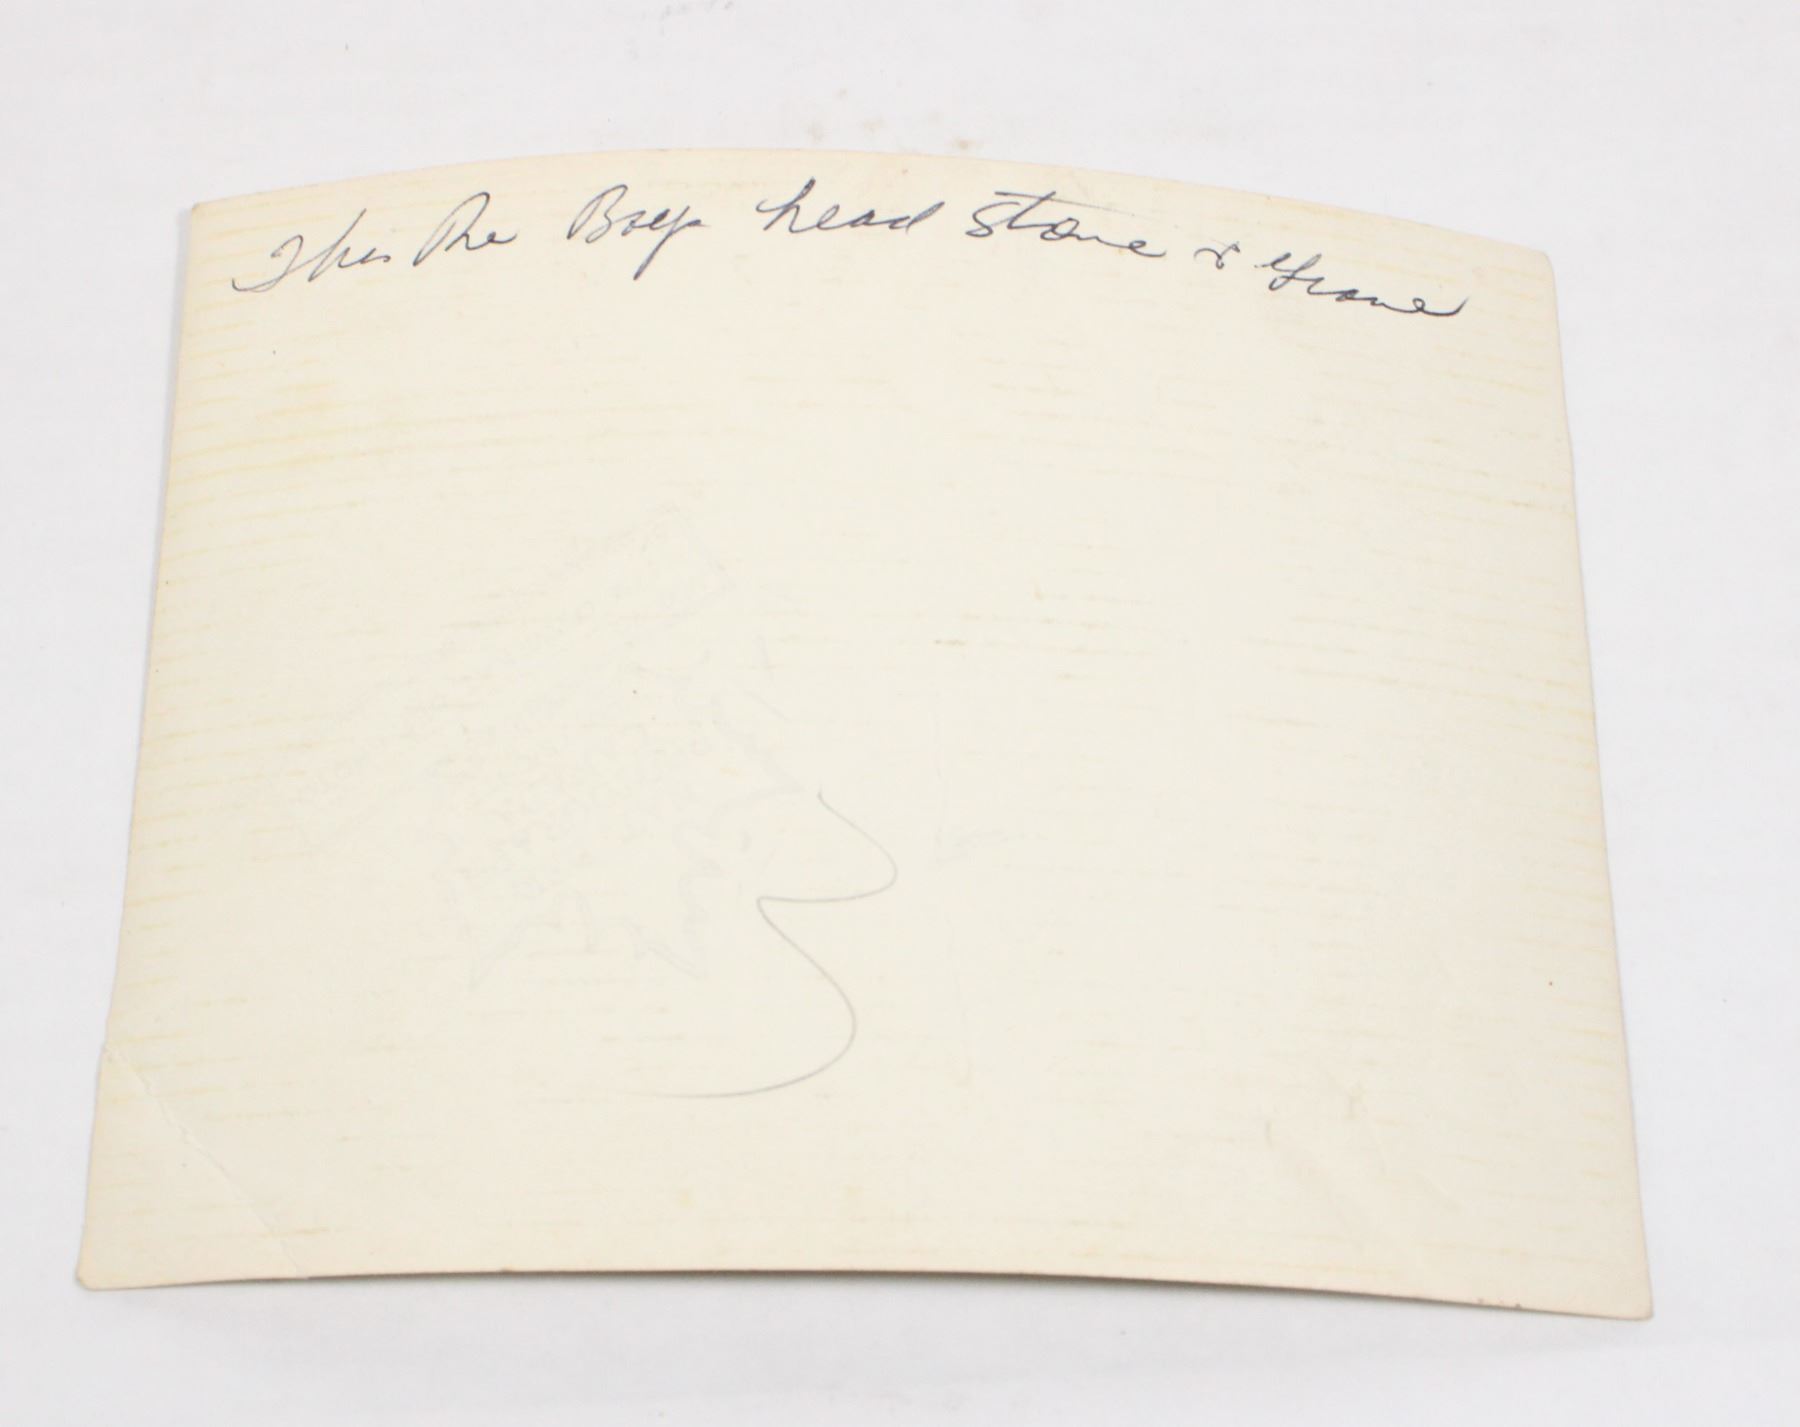 This the Boys head stone & Grave